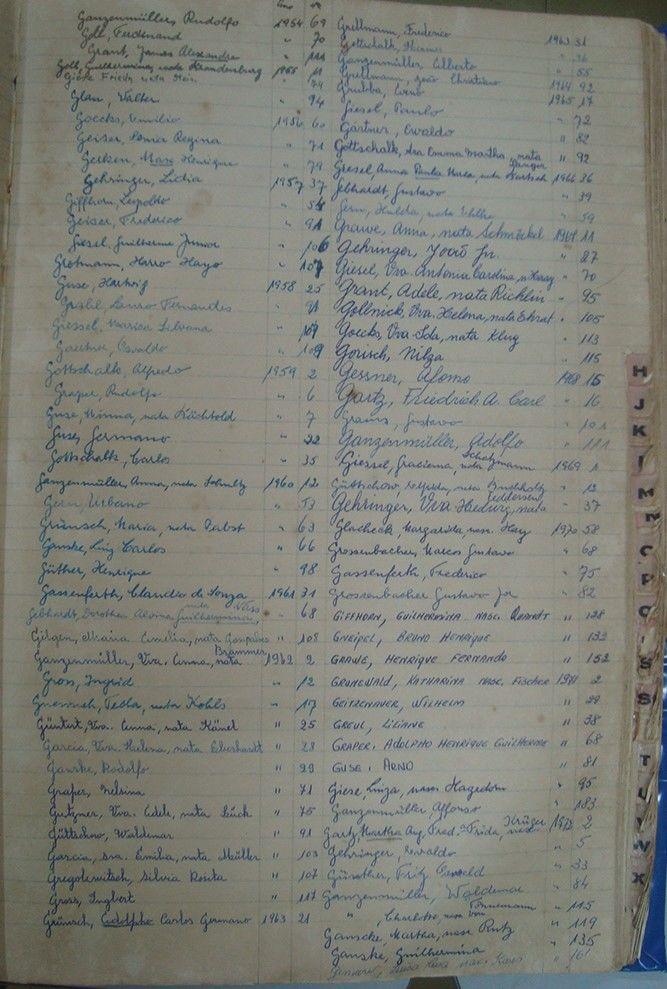 Ano
Nº
Ganzenmüller, Rudolfo 1954 69
Goll, Ferdinand " 70
Grant, James Alexandre " 111
Goll, Guilhermina, nata Brandenburg 1955 11
Friedr. nata " 74
Glau, Walter " 94
Goecks, Emilio 1956 60
Geiser, Sonia Regina " 71
Gerken, Max Henrique " 79
Gehringer, Lidia 1957 37
Giffhorn, Leopoldo " 54
Geiser, Frederico " 91
Giesel, Guilherme Junior " 106
Grotmann, Harro Hayo " 107
Guse, Hartwig 1958 25
Lauro Fernandes " 91
Giessel, Marisa Silvana " 107
Gaertner, Osvaldo " 109
Gottschalk, Alfredo 1959 2
Graper, Rudolfo " 6
Guse, Minna, nata Köchtold " 7
Guse, Germano " 22
Gottschalk, Carlos " 35
Ganzenmüller, Anna, nata Schultz 1960 12
Gern, Urbano " 53
Grünsch, Maria, nata Pabst " 63
Ganske, Luiz Carlos " 66
Güther, Henrique " 98
Gassenferth, Claudio de Souza 1961 31
Gebhardt, Dorothea Alvina Guilhermina, nata " 68
Gilgen, Maria Emilia, nata " 108
Ganzenmüller, Vva. Anna, nata Brammer 1962 2
Gross, Ingrid " 12
Tecla, nata Kohls " 17
Güntert, Vva. Anna, nata Hänel " 25
Garcia, Vva Helena, nata Eberhardt " 28
Ganske, Rodolfo " 29
Graper, Nelsina " 71
Gutzner, Vva. Adele, nata Lück " 75
Güttschow, Waldemar " 91
Garcia, Sra. Emilia, nata Müller " 103
Gregolewitsch, Silvia Rosita " 107
Gross, Ingbert " 117
Grünsch, Adolpho Carlos Germano 1963 21
Grellmann, Frederico 1963 31
Gottschalk, " 36
Ganzenmüller, Gilberto " 55
Grellmann, João Christiano 1964 92
Grubba, 1965 17
Giesel, Paulo " 72
Gärtner, Osvaldo " 82
Gottschalk, Sra Emma Martha, nata " 92
Giesel, Anna Paula Maria, nata 1966 36
Gebhardt, Gustavo " 39
Gern, Hulda, nata " 59
Grauwe, Anna, nata Schmöckel 1967 11
Gehringer, João Jr. " 87
Giesel, Vva. Antonia Cardina, n " 70
Grant, Adele, nata Ricklin " 95
Gollnick, Vva. Helena, nata Ehrat " 105
Goecks, Vva. Ida, nata Klug " 113
Gorisch, Nilza " 115
Gessner, Afonso 1968 15
Gartz, Friedrich A. Carl " 16
Gustavo " 101
Ganzenmüller, Adolfo " 111
Giessel, Gracienna, nata Schatzmann 1969 1
Güttschow, Elfrida, nata Buchholz " 12
Gehringer, Vva Hedwig, nata Feddersen " 37
Glacheck, Margarida, nasc. Hay 1970 58
Grossenbacher, Marcos Gustavo " 68
Gassenferth, Frederico " 75
Grossenbacher Gustavo Jr. " 82
GIFFHORN, GUILHERMINA NASC. QUANDT " 128
GNEIPEL, BRUNO HENRIQUE " 133
GRAUWE, HENRIQUE FERNANDO " 152
GRUNEWALD, KATHARINA NASC. FISCHER 1971 2
GEITZENAUER, WILHELM " 29
GREUL, LILIANE " 38
GRAPER, ADOLPHO HENRIQUE GUILHERME " 68
GUSE, ARNO " 81
Giese, Luiza, nasc Hagedorn " 95
Ganzenmüller, Affonso " 183
Gartz, Martha Aug. Fred. Frida, nasc Krüger 1972 2
Gehringer, Osvaldo " 5
Günther, Fritz Oswald " 33
Ganzenmüller, Waldemar " 84
" , Charlotte, nasc Von " 115
Ganscke, Martha, nasc Rutz " 119
Ganske, Guilhermina " 135
Luiza nasc. " 161
H
J
K
L
M
N
O
P
Q
R
S
S
T
U
V
W
X